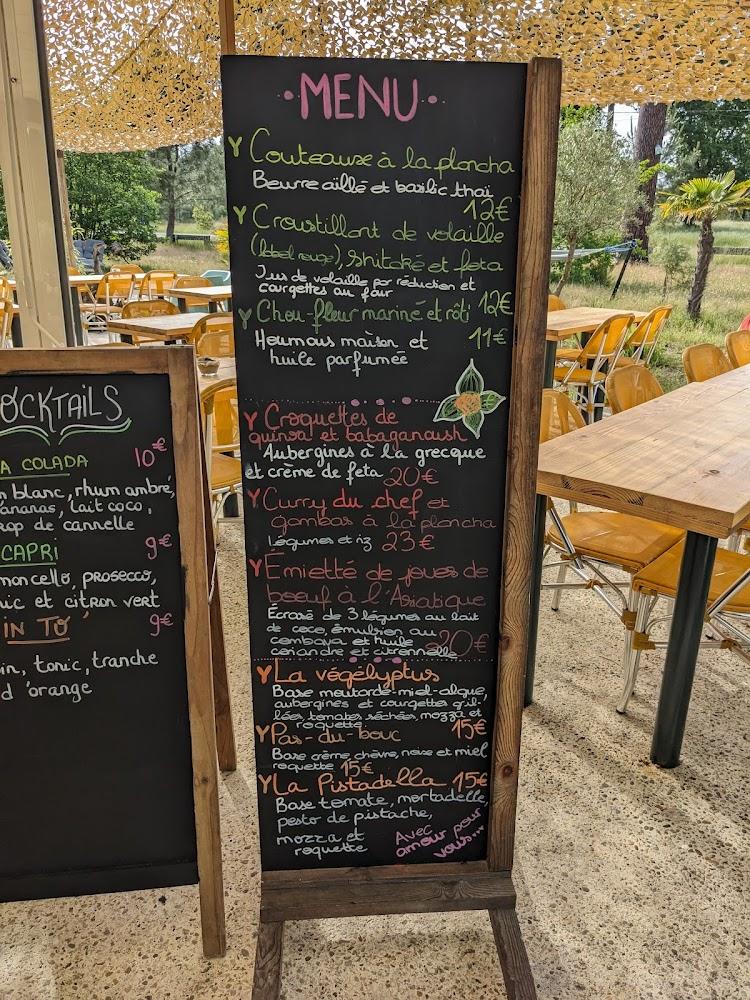 MENU
Couteaux à la plancha
Beurre aillé et basilic thaï
12€
Croustillant de volaille
(label rouge), shitaké et feta
Jus de volaille par réduction et
courgettes au four
12€
Chou-fleur mariné et rôti
11€
Houmous maison et
huile parfumée
Croquettes de
quinoa et babaganoush
Aubergines à la grecque
et crème de feta 20€
Curry du chef et
gambas à la plancha
légumes et riz 23€
Émietté de joues de
boeuf à l'Asiatique
Écrasé de 3 légumes au lait
de coco, émulsion au
combava et huile
coriandre et citronnelle 20€
La végélyptus
Base moutarde-miel-algue,
aubergines et courgettes gril-
lées, tomates séchées, mozza et
roquette 15€
Pas-du-bouc
Base crème, chèvre, noix et miel
roquette 15€
La Pistadella 15€
Base tomate, mortadelle,
pesto de pistache,
mozza et
roquette
Avec
amour pour
vous...
OCKTAILS
A COLADA 10€
n blanc, rhum ambré,
ananas, lait coco,
rop de cannelle
CAPRI 9€
moncello, prosecco,
nic et citron vert
IN TO 9€
in, tonic, tranche
d'orange